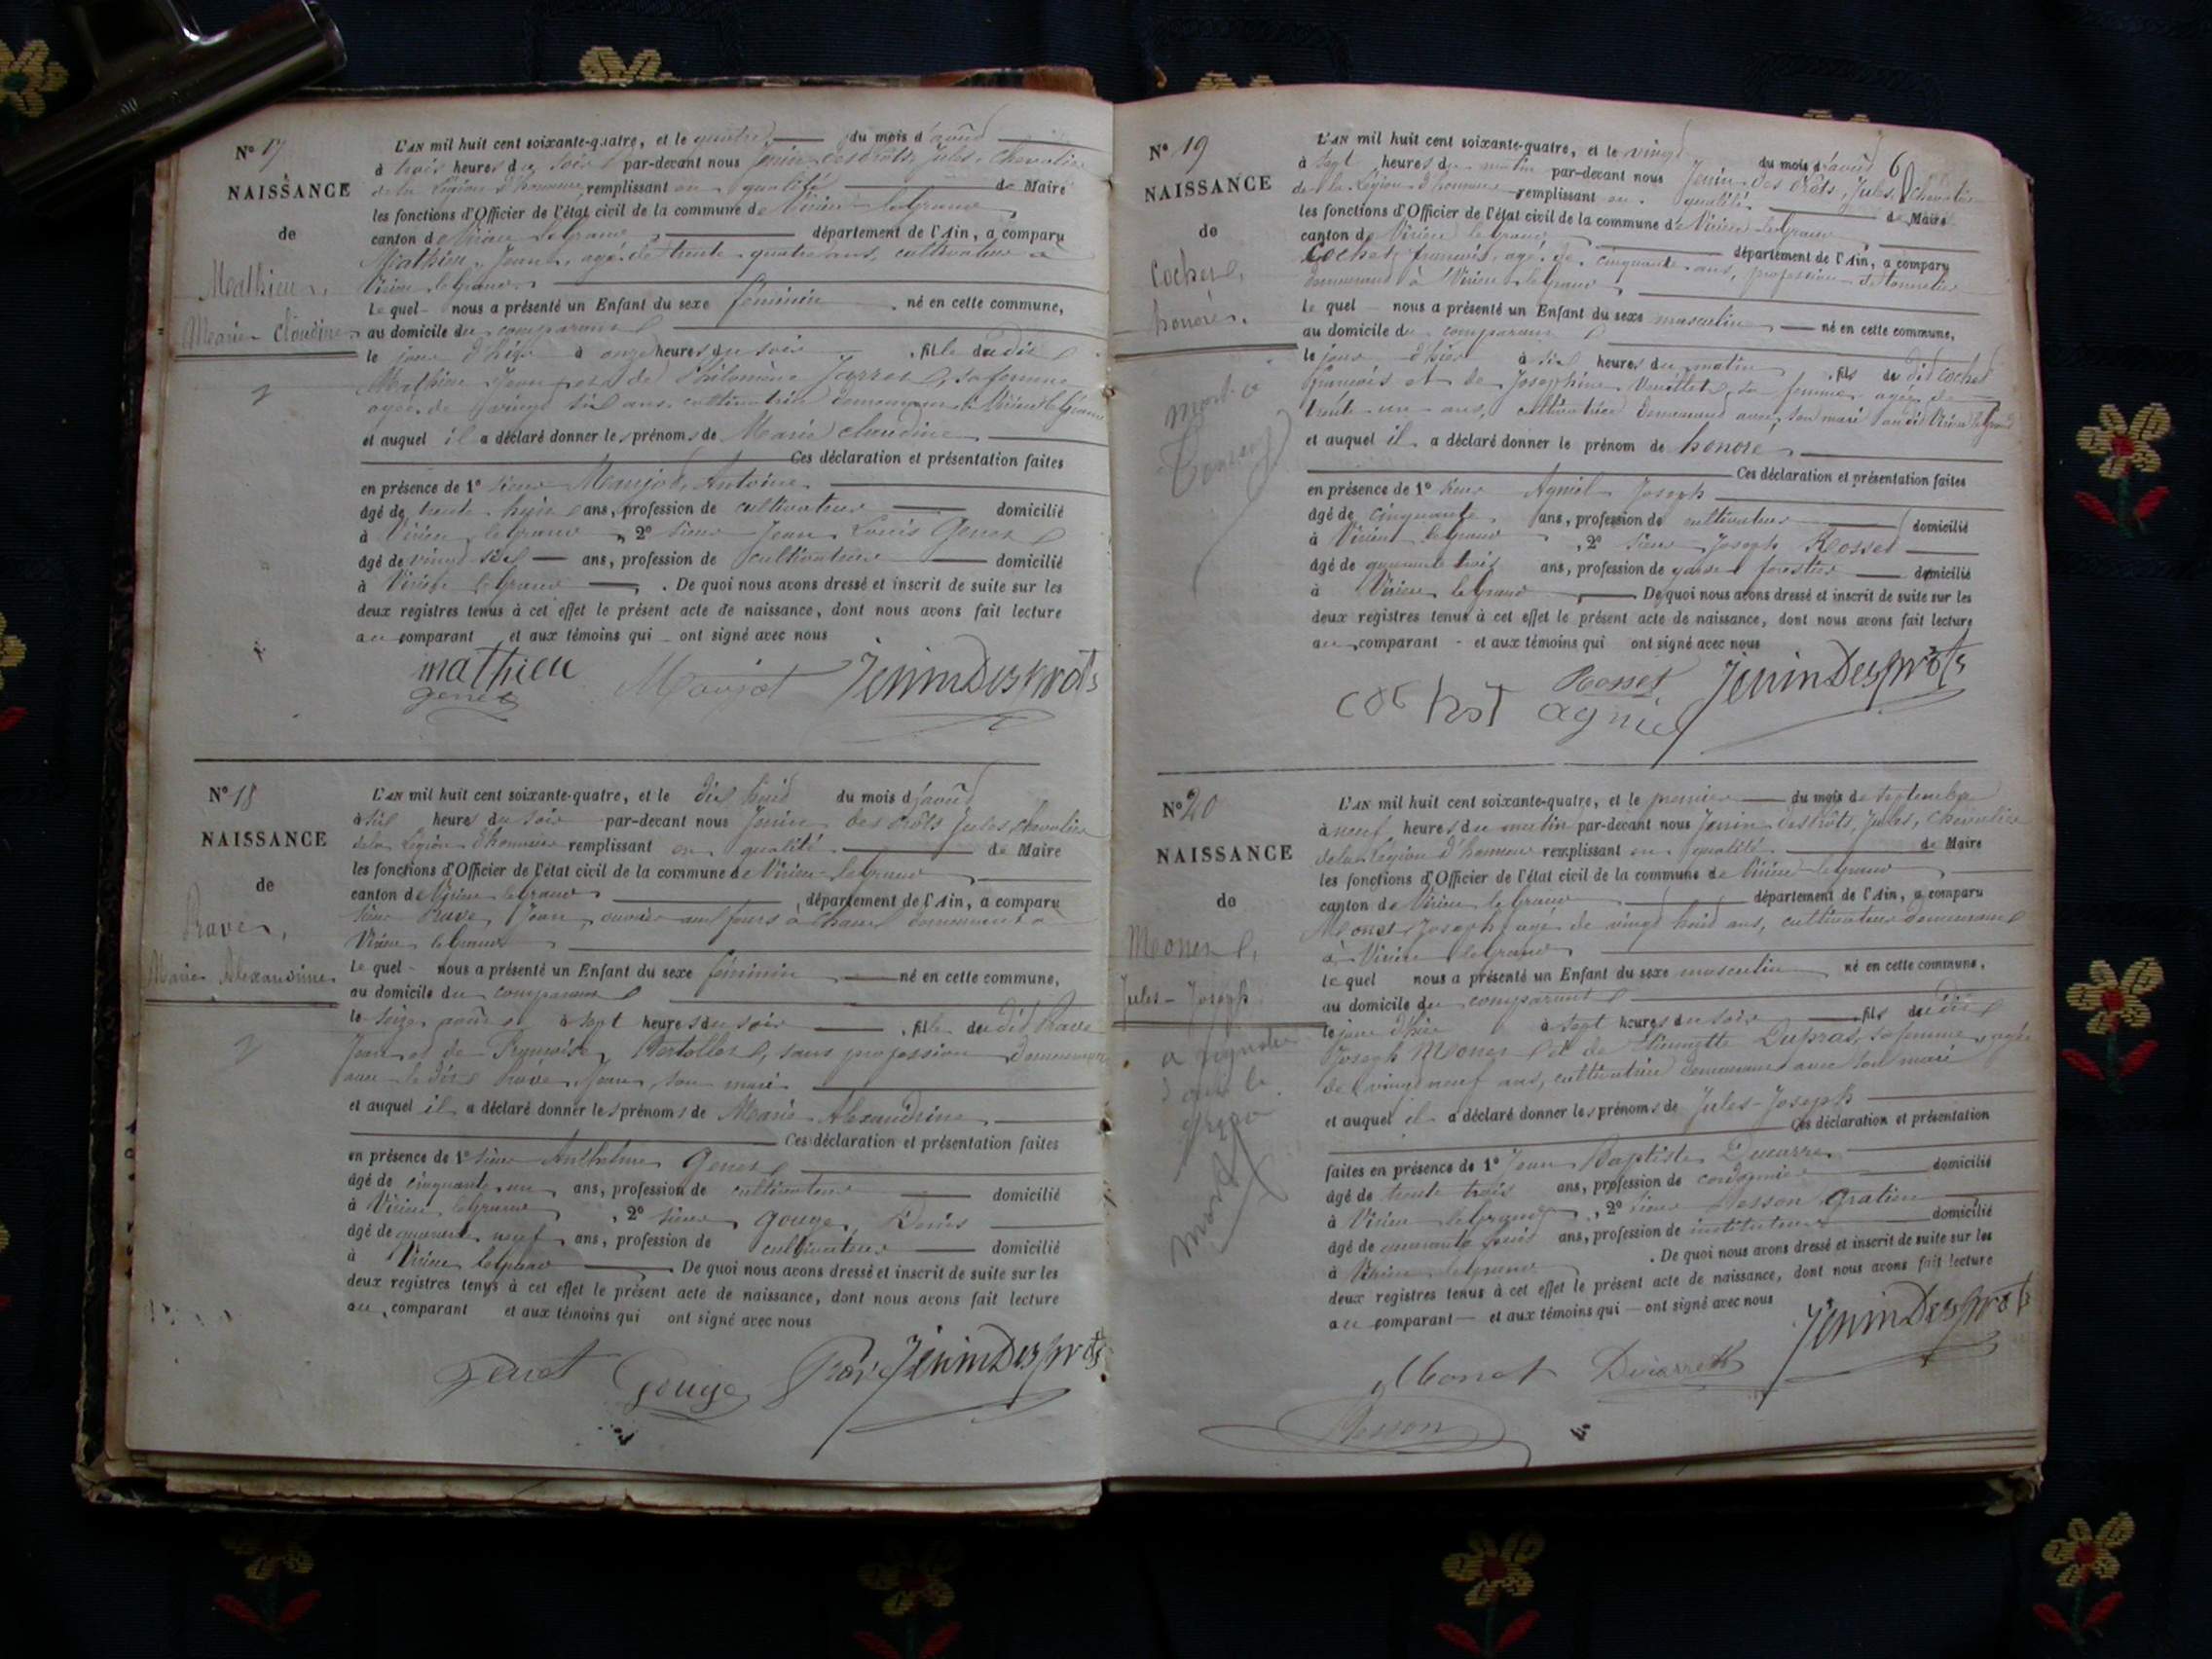 N° 17
NAISSANCE
de
Mathieu,
Marie Claudine
L'AN mil huit cent soixante-quatre, et le du mois d'août
à trois heures du soir par-devant nous Jenin Desprôts, Jules, Chevalier
de la Légion d'honneur remplissant en qualité de Maire
les fonctions d'Officier de l'état civil de la commune de Virieu-le-Grand
canton de Virieu le Grand département de l'Ain, a comparu
Mathieu, Jean, agé de trente quatre ans, cultivateur à
Virieu le Grand
Le quel nous a présenté un Enfant du sexe féminin né en cette commune,
au domicile du comparant
le jour d'hier à onze heures du soir , fille du dit
Mathieu Jean et de Philomène sa femme
agée de vingt six ans, cultivatrice demeurant à Virieu le Grand
et auquel il a déclaré donner les prénoms de Marie Claudine
Ces déclaration et présentation faites
en présence de 1° sieur Maujot, Antoine
âgé de trente ans, profession de cultivateur domicilié
à Virieu le Grand , 2° sieur Jean Louis Genet
âgé de vingt six ans, profession de cultivateur domicilié
à Virieu le Grand . De quoi nous avons dressé et inscrit de suite sur les
deux registres tenus à cet effet le présent acte de naissance, dont nous avons fait lecture
au comparant et aux témoins qui ont signé avec nous
mathieu Maujot JeninDesprôts
genet
N° 18
NAISSANCE
de
Ravet,
Marie Alexandrine
L'AN mil huit cent soixante-quatre, et le dix huit du mois d'août
à six heures du soir par-devant nous Jenin Desprôts Jules chevalier
de la Légion d'honneur remplissant en qualité de Maire
les fonctions d'Officier de l'état civil de la commune de Virieu-le-Grand
canton de Virieu le Grand département de l'Ain, a comparu
sieur Jean, ouvrier aux fours à chaux demeurant à
Virieu le Grand
Le quel nous a présenté un Enfant du sexe féminin né en cette commune,
au domicile du comparant
le seize août à sept heures du soir , fille du dit
Jean et de Françoise sans profession demeurant
avec le dit Jean, son mari
et auquel il a déclaré donner les prénoms de Marie Alexandrine
Ces déclaration et présentation faites
en présence de 1° sieur Anthelme Genet
âgé de cinquante un ans, profession de cultivateur domicilié
à Virieu le Grand , 2° sieur Gouge, Denis
âgé de quarante neuf ans, profession de cultivateur domicilié
à Virieu le Grand . De quoi nous avons dressé et inscrit de suite sur les
deux registres tenus à cet effet le présent acte de naissance, dont nous avons fait lecture
au comparant et aux témoins qui ont signé avec nous
Genet Gouge JeninDesprôts
6
N° 19
NAISSANCE
de
Cochet,
honoré.
mort à
L'AN mil huit cent soixante-quatre, et le vingt du mois d'août
à sept heures du matin par-devant nous Jenin Desprôts, Jules, Chevalier
de la Légion d'honneur remplissant en qualité de Maire
les fonctions d'Officier de l'état civil de la commune de Virieu-le-Grand
canton de Virieu le Grand département de l'Ain, a comparu
Cochet, françois, agé de cinquante ans, profession de tonnelier
demeurant à Virieu le Grand
Le quel nous a présenté un Enfant du sexe masculin né en cette commune,
au domicile du comparant
le jour d'hier à six heures du matin , fils du dit Cochet
françois et de Josephine sa femme agée de
trente un ans, cultivatrice demeurant avec son mari audit Virieu le Grand
et auquel il a déclaré donner le prénom de honoré
Ces déclaration et présentation faites
en présence de 1° sieur Agniel Joseph
âgé de cinquante ans, profession de cultivateur domicilié
à Virieu le Grand , 2° sieur Joseph Rosset
âgé de quarante trois ans, profession de garde forestier domicilié
à Virieu le Grand De quoi nous avons dressé et inscrit de suite sur les
deux registres tenus à cet effet le présent acte de naissance, dont nous avons fait lecture
au comparant et aux témoins qui ont signé avec nous
cochet Rosset agniel JeninDesprôts
N° 20
NAISSANCE
de
Monet,
Jules-Joseph
mort
L'AN mil huit cent soixante-quatre, et le premier du mois de septembre
à neuf heures du matin par-devant nous Jenin Desprôts, Jules, Chevalier
de la Légion d'honneur remplissant en qualité de Maire
les fonctions d'Officier de l'état civil de la commune de Virieu le Grand
canton de Virieu le Grand département de l'Ain, a comparu
Monet Joseph, agé de vingt huit ans, cultivateur demeurant
à Virieu le Grand
Le quel nous a présenté un Enfant du sexe masculin né en cette commune,
au domicile du comparant
le jour d'hier à sept heures du soir fils du dit
Joseph Monet et de Dupras, sa femme, agée
de vingt neuf ans, cultivatrice demeurant avec son mari
et auquel il a déclaré donner les prénoms de Jules-Joseph
Ces déclaration et présentation
faites en présence de 1° Jean Baptiste
âgé de trente trois ans, profession de cordonnier domicilié
à Virieu le Grand , 2° sieur Gratien
âgé de quarante ans, profession de instituteur domicilié
à Virieu le Grand . De quoi nous avons dressé et inscrit de suite sur les
deux registres tenus à cet effet le présent acte de naissance, dont nous avons fait lecture
au comparant et aux témoins qui ont signé avec nous
Monet JeninDesprôts